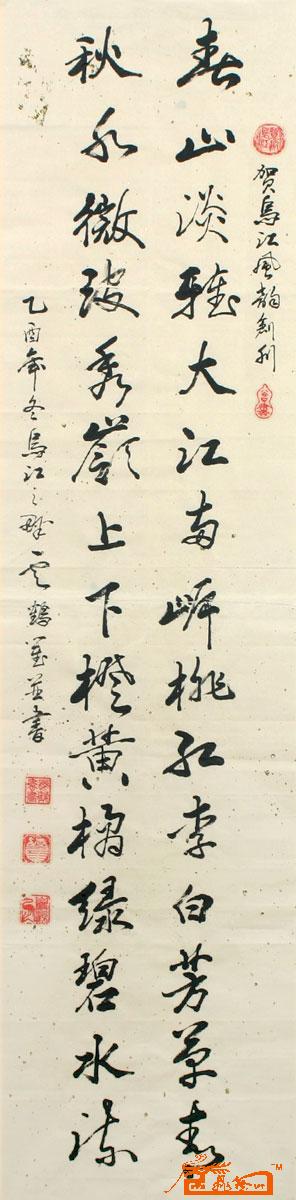 贺乌江风韵创刊
春山淡雅大江南岸桃红李白芳草春
秋水微波秀岭上下橙黄橘绿碧水流
乙酉年冬乌江之畔云鹤撰并书